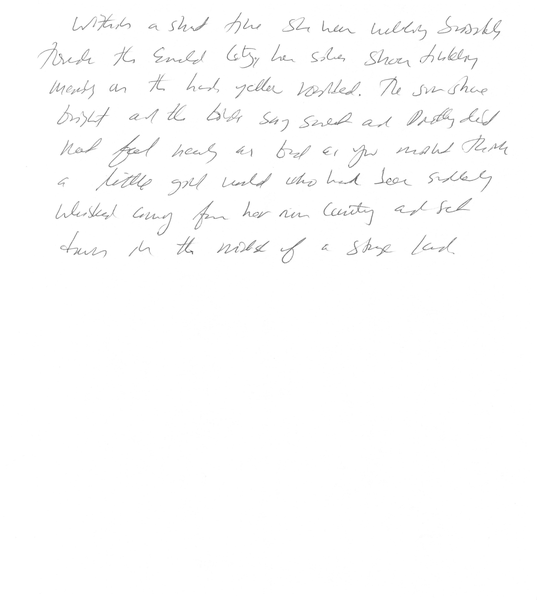 Within a short time she was walking briskly
towards the Emerald City, her silver shoes tinkling
merrily on the hard yellow roadbed. The sun shone
bright and the birds sang sweet and Dorothy did
not feel nearly as bad as you might think
a little girl would who had been suddenly
whisked away from her own country and set
down in the midst of a strange land.